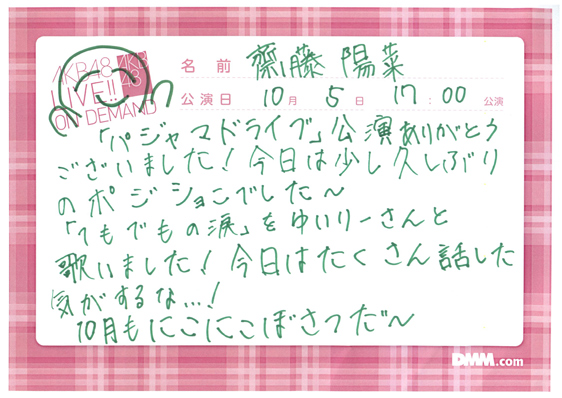 AKB48
LIVE!!
ON DEMAND
AKB
48
名前 齋藤 陽菜
公演日 10月 5日 17:00 公演
「パジャマドライブ」公演ありがとう
ございました!今日は少し久しぶり
のポジションでした〜
「てもでもの涙」をゆいりーさんと
歌いました!今日はたくさん話した
気がするな...!
10月もにこにこぼさつだ〜
DMM.com